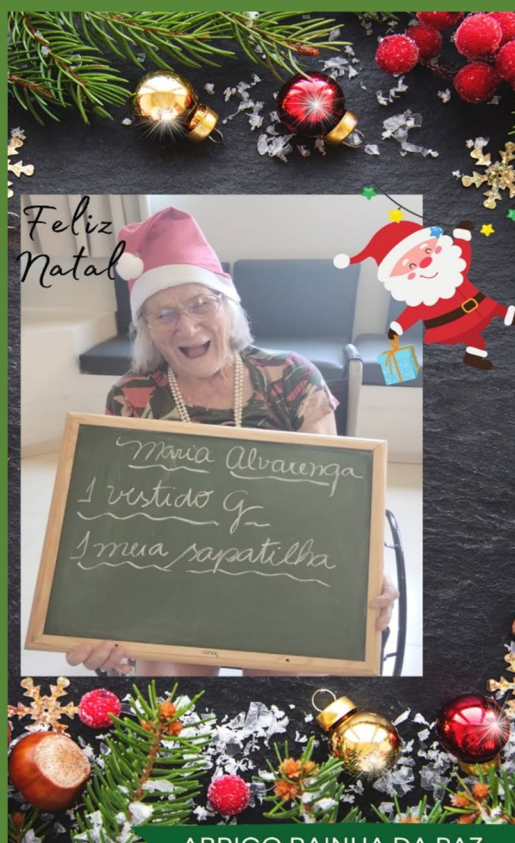 Feliz
Natal
Maria Alvarenga
1 vestido G
1 meia sapatilha
ABRIGO RAINHA DA PAZ